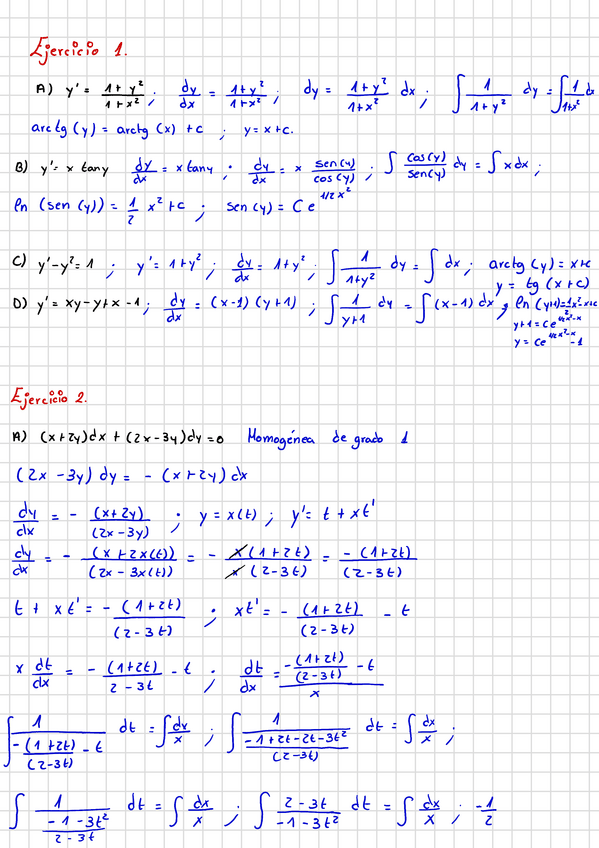 Ejercicio 1.
A) y' = (1+y²)/(1+x²) ; dy/dx = (1+y²)/(1+x²) ; dy = (1+y²)/(1+x²) dx ; ∫ 1/(1+y²) dy = ∫ 1/(1+x²) dx
arctg (y) = arctg (x) + c ; y = x + c.
B) y' = x tany dy/dx = x tany ; dy/dx = x sen(y)/cos(y) ; ∫ cos(y)/sen(y) dy = ∫ x dx ;
ln (sen (y)) = 1/2 x² + c ; sen (y) = C e^(1/2 x²)
C) y' - y² = 1 ; y' = 1+y² ; dy/dx = 1+y² ; ∫ 1/(1+y²) dy = ∫ dx ; arctg (y) = x+c
y = tg (x+c)
D) y' = xy - y + x - 1 ; dy/dx = (x-1) (y+1) ; ∫ 1/(y+1) dy = ∫ (x-1) dx ; ln (y+1) = 1/2 x² - x + c
y+1 = C e^(1/2 x² - x)
y = C e^(1/2 x² - x) - 1
Ejercicio 2.
A) (x+2y)dx + (2x-3y)dy = 0 Homogénea de grado 1
(2x - 3y) dy = - (x+2y) dx
dy/dx = - (x+2y)/(2x-3y) ; y = x(t) ; y' = t + xt'
dy/dx = - (x+2x(t))/(2x-3x(t)) = - x(1+2t)/x(2-3t) = -(1+2t)/(2-3t)
t + xt' = - (1+2t)/(2-3t) ; xt' = - (1+2t)/(2-3t) - t
x dt/dx = - (1+2t)/(2-3t) - t ; dt/dx = (-(1+2t)/(2-3t) - t)/x
∫ 1/(-(1+2t)/(2-3t) - t) dt = ∫ dx/x ; ∫ 1/((-1+2t-2t-3t²)/(2-3t)) dt = ∫ dx/x ;
∫ 1/((-1-3t²)/(2-3t)) dt = ∫ dx/x ; ∫ (2-3t)/(-1-3t²) dt = ∫ dx/x ; -1/2